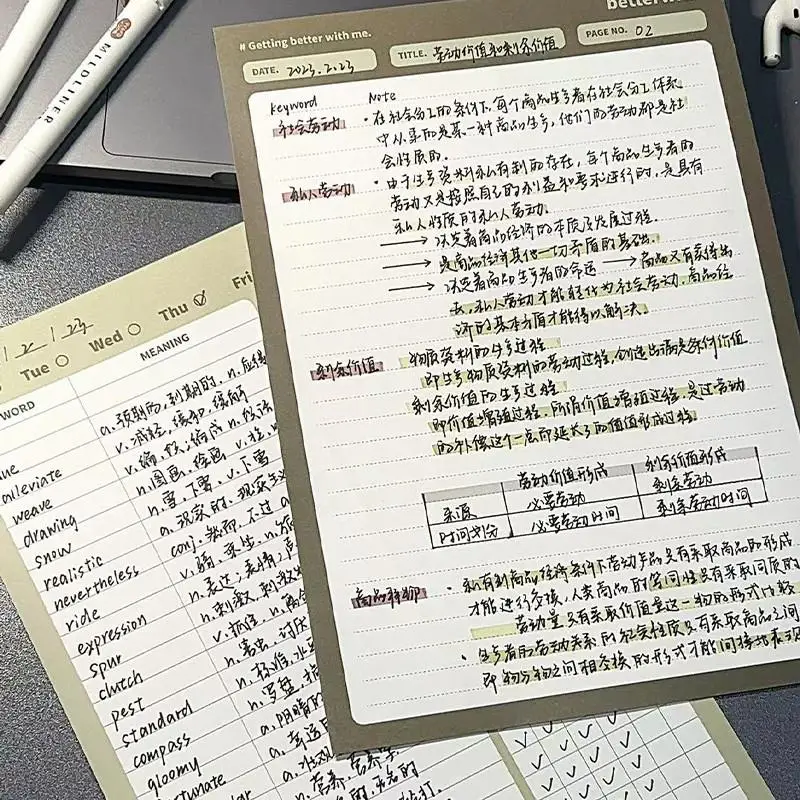 MILDLINER
# Getting better with me.
DATE. 2023.2.23
TITLE. 劳动价值和剩余价值
PAGE NO. 02
keyword Note
社会劳动 · 在社会分工的条件下,每个商品生产者在社会分工体系
中从事的是某一种商品生产,他们的劳动都是社
会性质的.
私人劳动 · 由于生产资料私有制的存在,每个商品生产者的
劳动又是按照自己的利益和要求进行的,是具有
私人性质的私人劳动.
→ 决定着商品经济的本质及发展过程.
→ 是商品经济其他一切矛盾的基础.
→ 决定着商品生产者的命运 → 商品
去,私人劳动才能转化为社会劳动,商品经
济的基本矛盾才能得以解决.
剩余价值 物质资料的生产过程
即生产物质资料的劳动过程,创造出满足条件价值
剩余价值的生产过程
即价值增殖过程,所谓价值增殖过程,是过劳动
的补偿这个一点而延长了的价值形成过程.
劳动价值形成 剩余价值形成
来源 必要劳动 剩余劳动
时间划分 必要劳动时间 剩余劳动时间
商品拜物 · 私有制商品经济条件下劳动产品只有采取商品的形式
才能进行交换,人类商品的等同性只有采取同质的
劳动量只有采取价值量这一物的形式比较
· 生产者的劳动关系的社会性质只有采取商品之间
即物与物之间相交换的形式才能间接地表现
2 / 23
Tue Wed Thu Fri
WORD MEANING
ue a. 预期的,到期的. n. 应
alleviate v. 减轻,缓和,缓解
weave v. 编,织;编成 n. 织法
drawing n. 图画,绘画
snow n. 雪,下雪 v. 下雪
realistic a. 现实的,现实主义
nevertheless conj. 然而,不过
ride v. 骑,乘坐 n.
expression n. 表达,表情,
spur n. 刺激 刺激
clutch v. 抓住 n. 离合
pest n. 害虫,讨厌
standard n. 标准,水
compass n. 罗盘,指
gloomy a. 阴暗的
rtunate a. 幸运
n. 营养,营养